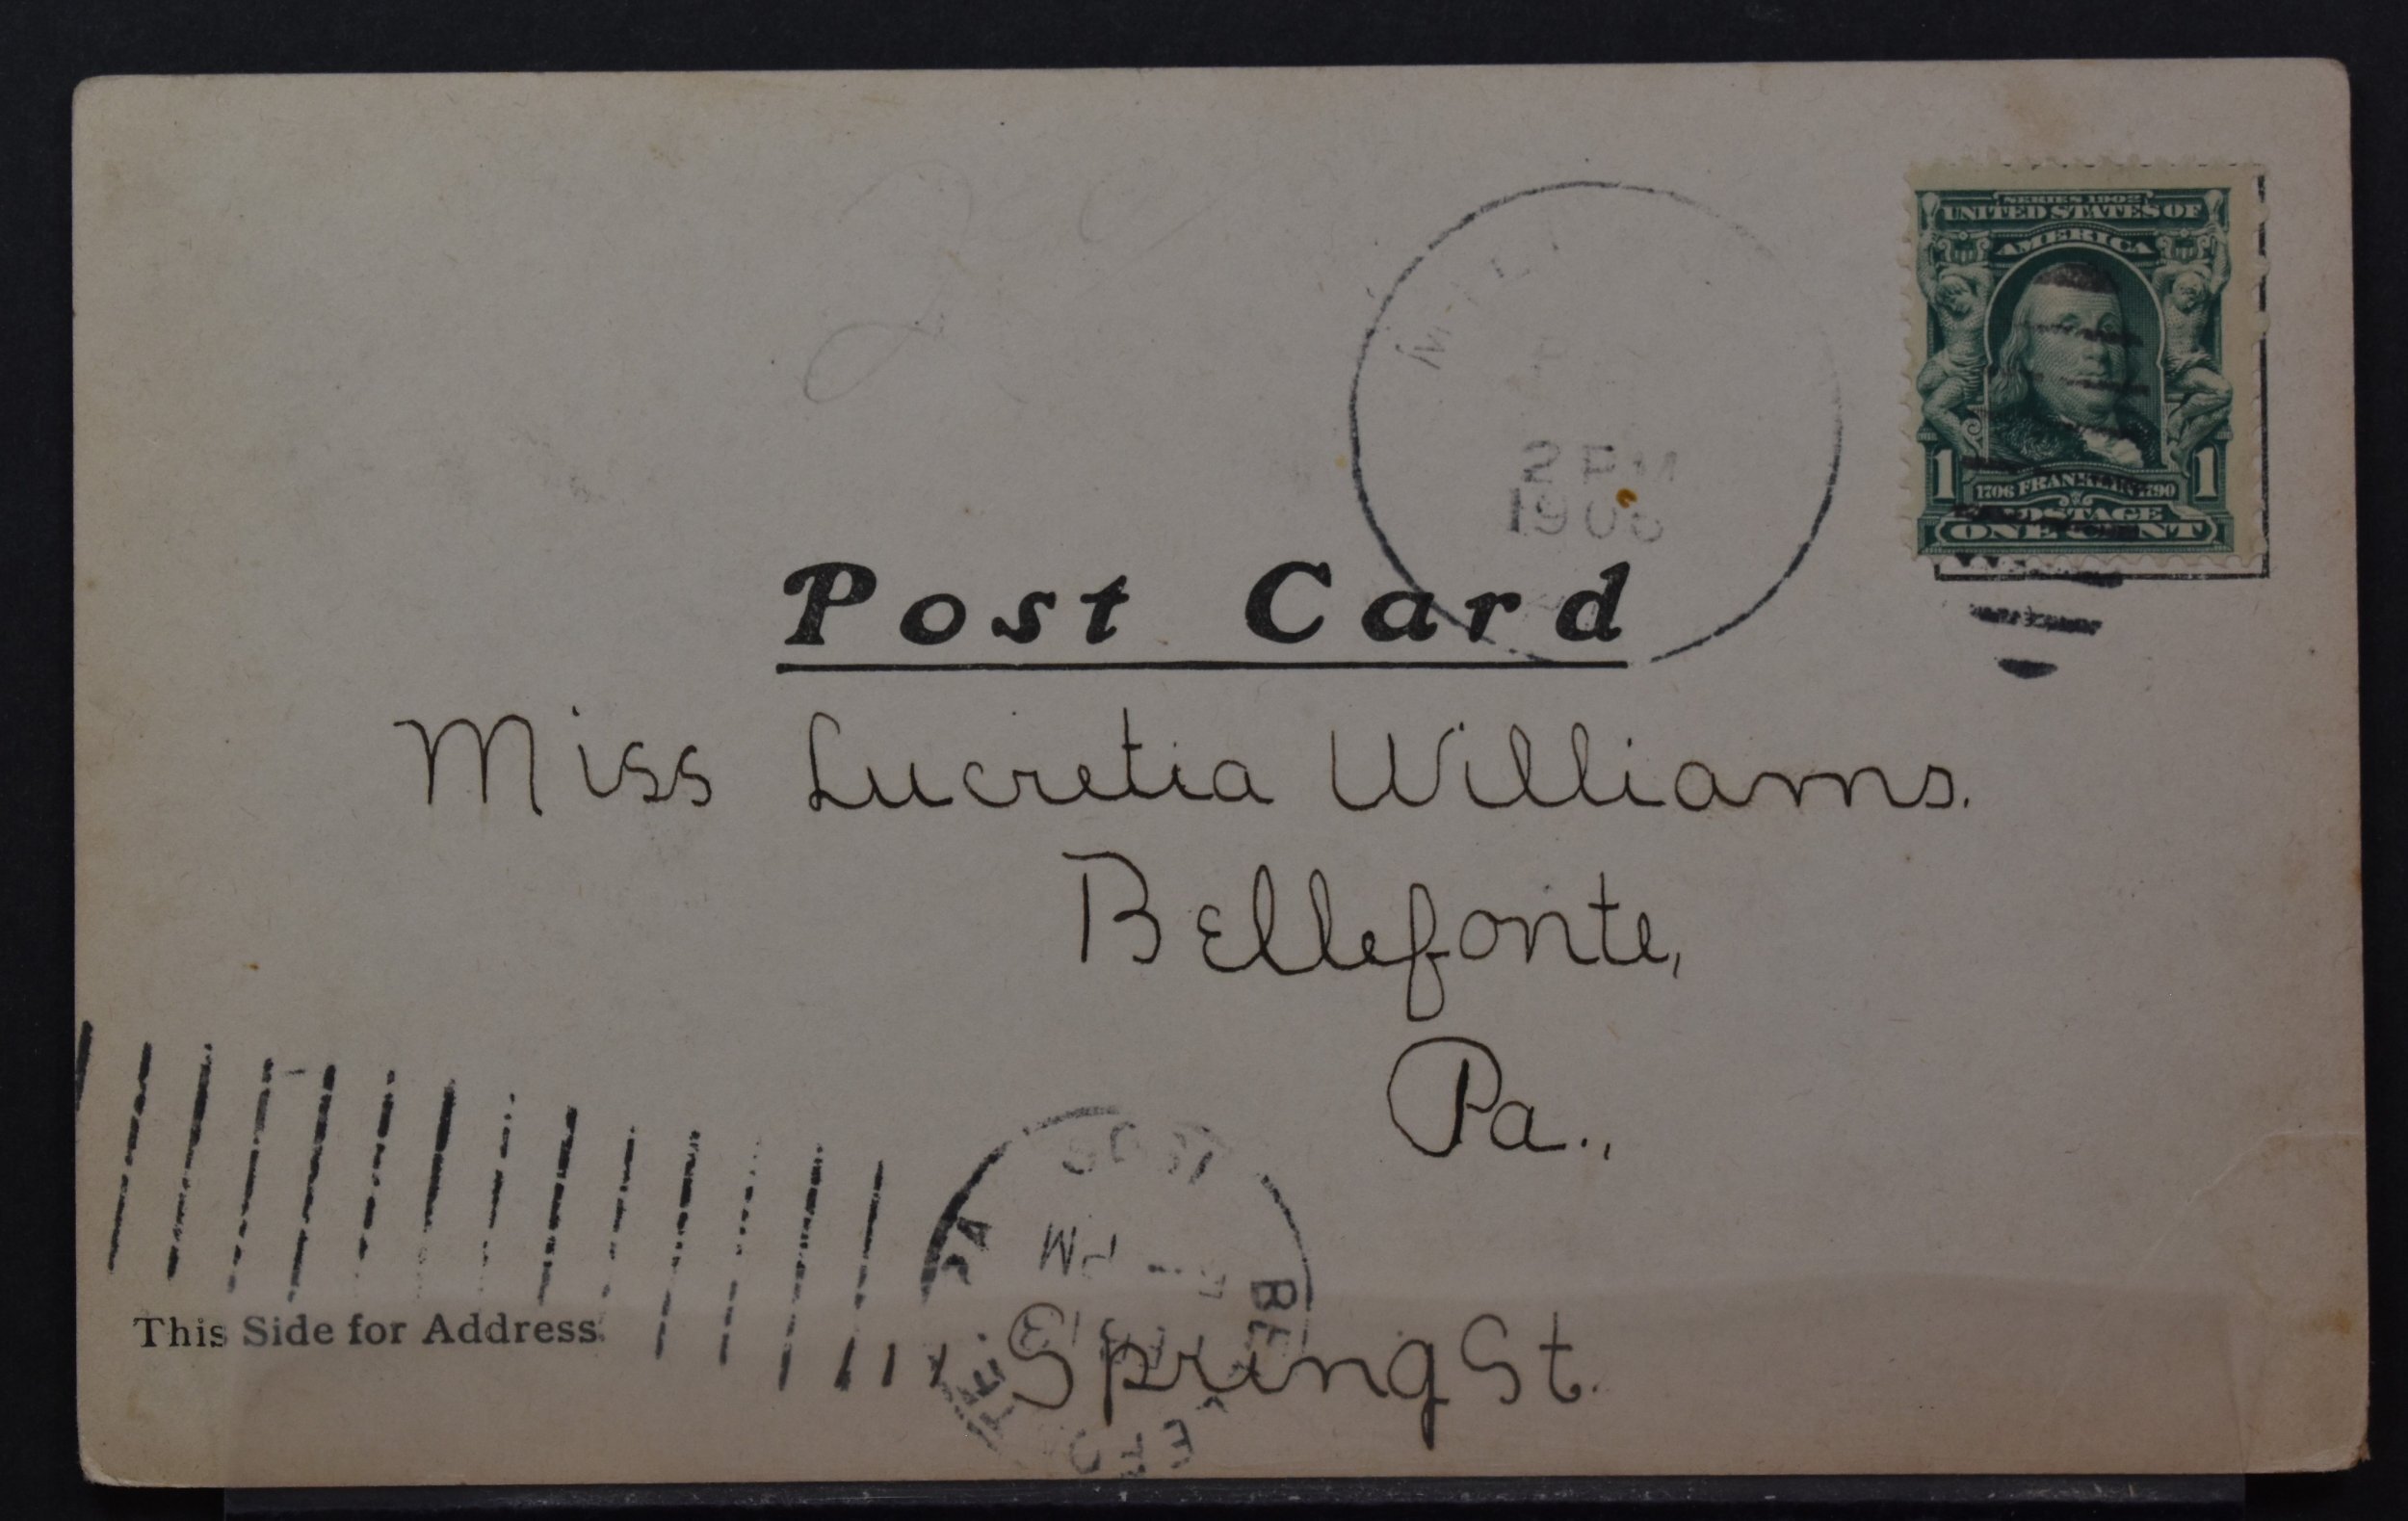 SERIES 1902
UNITED STATES OF
AMERICA
1 1706 FRANKLIN 1790 1
POSTAGE
ONE CENT
2 PM
1906
Post Card
Miss Lucretia Williams.
Bellefonte,
Pa.,
PA
PM
13
This Side for Address.
Spring St.